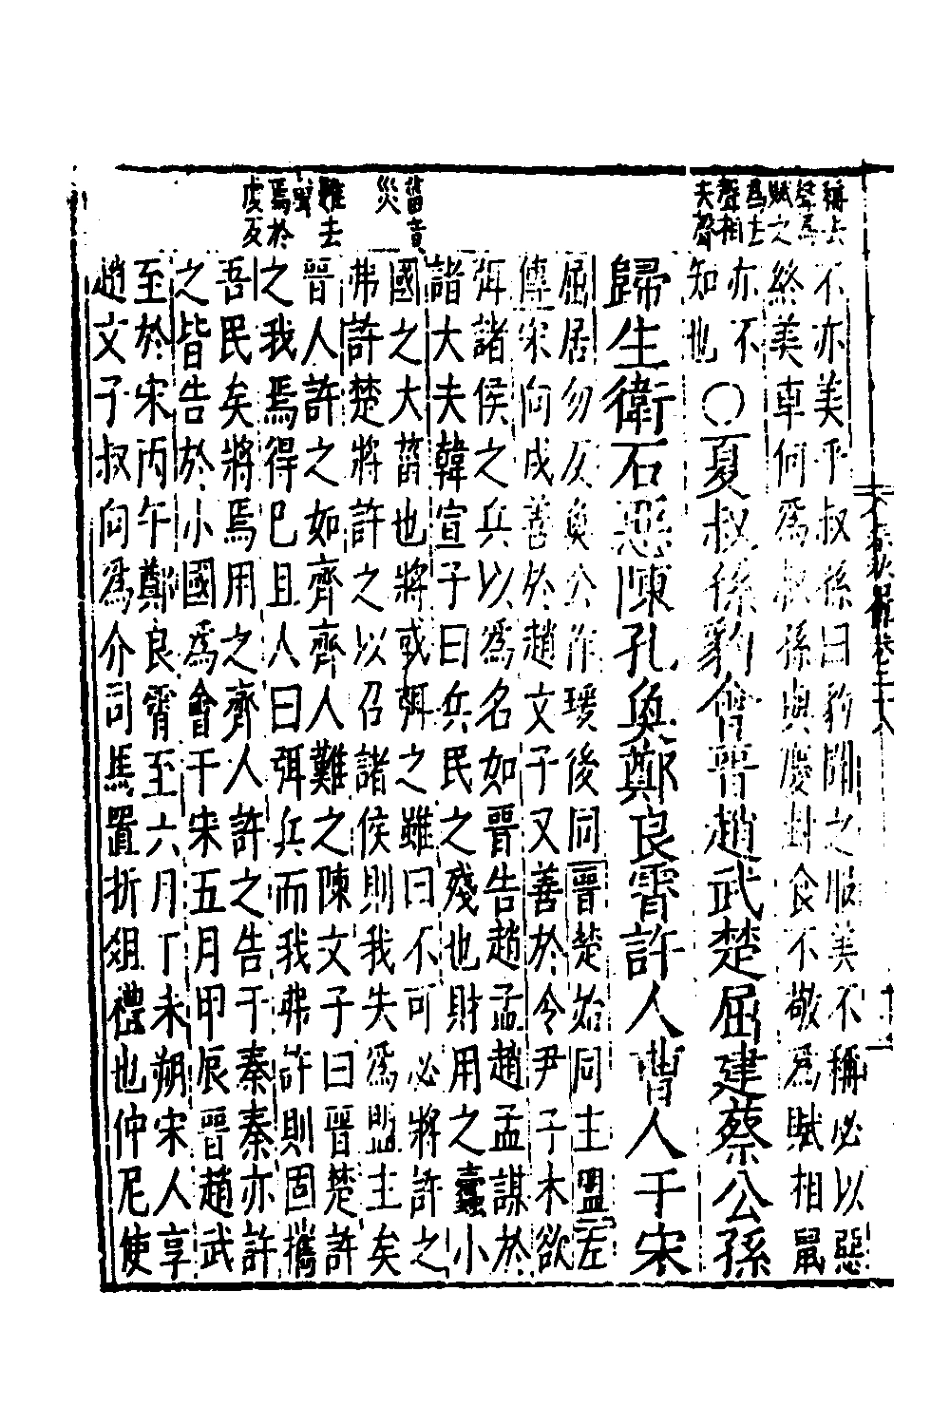 稱去
聲為
賦之
為去
聲相
夫聲
菑音
災
難去
聲
焉於
虔反
不亦美乎叔孫曰豹聞之服美不稱必以惡
終美車何為叔孫與慶封食不敬為賦相鼠
亦不
知也
○夏叔孫豹會晉趙武楚屈建蔡公孫
歸生衛石惡陳孔奐鄭良霄許人曹人于宋
屈居勿反奐公作瑗後同晉楚始同主盟左
傳宋向戌善於趙文子又善於令尹子木欲
弭諸侯之兵以為名如晉告趙孟趙孟謀於
諸大夫韓宣子曰兵民之殘也財用之蠹小
國之大菑也將或弭之雖曰不可必將許之
弗許楚將許之以召諸侯則我失為盟主矣
晉人許之如齊齊人難之陳文子曰晉楚許
之我焉得已且人曰弭兵而我弗許則固攜
吾民矣將焉用之齊人許之告于秦秦亦許
之皆告於小國為會于宋五月甲辰晉趙武
至於宋丙午鄭良霄至六月丁未朔宋人享
趙文子叔向為介司馬置折俎禮也仲尼使
卷三十八